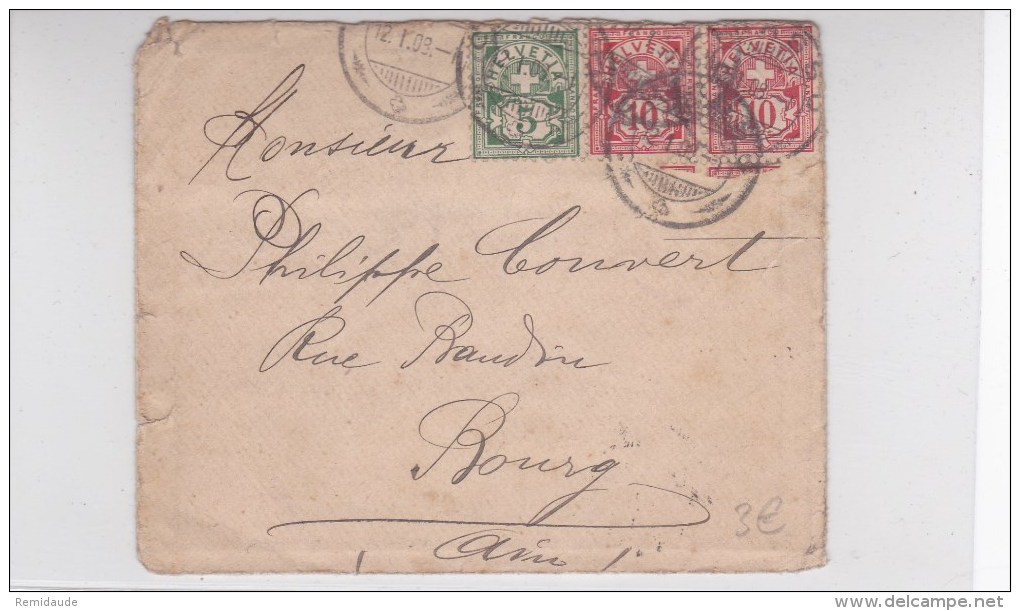 12.I.03.-
HELVETIA HELVETIA HELVETIA
5 10 10
Monsieur
Philippe Convert
Rue Baudin
Bourg
Ain
3€
Remidaude
www.delcampe.net